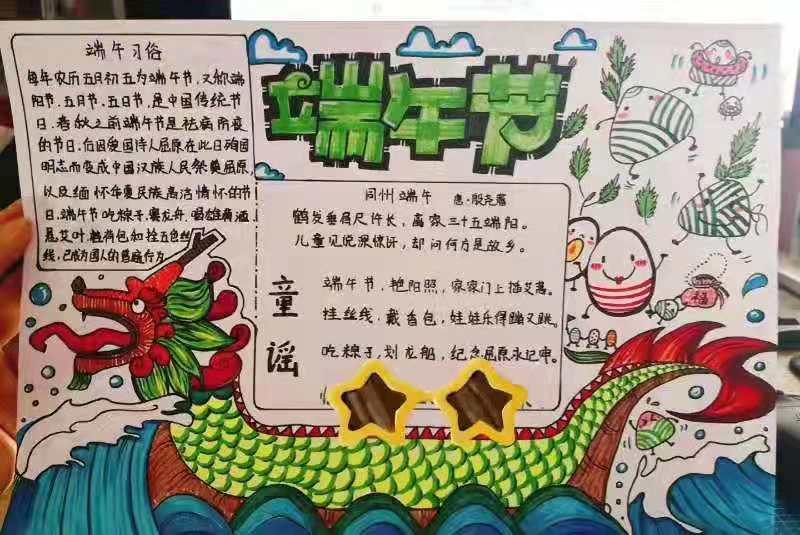 端午习俗
每年农历五月初五为端午节，又称端
阳节、五月节、五日节，是中国传统节
日。春秋之前端午节是祛病防疫
的节日，后因爱国诗人屈原在此日殉国
明志而变成中国汉族人民祭奠屈原，
以及缅怀华夏民族高洁情怀的节
日。端午节吃粽子，赛龙舟，喝雄黄酒
悬艾叶，佩香包和拴五色丝
线，已成为国人的
端午节
同州端午 唐·殷尧藩
鹤发垂肩尺许长，离家三十五端阳。
儿童见说深惊讶，却问何方是故乡。
童谣
端午节，艳阳照，家家门上插艾蒿。
挂丝线，戴香包，娃娃乐得蹦又跳。
吃粽子，划龙船，纪念屈原永记
福